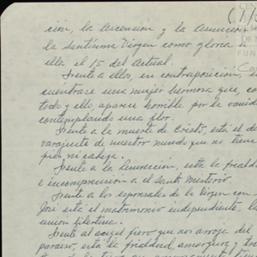 ción, la Ascención y la Asunción
la Santísima Virgen como gloria
ella el 15 del actual.
Frente a ellos, en contraposición,
encuentrase una mujer hermosa que, con
todo y ello, aparece horrible por la vanidad
contemplando una flor.
Frente a la muerte de Cristo, está el de
de nuestro mundo que no tiene
pies ni cabeza.
Frente a la Resurrección, está la frialdad
e incomprensión a el Santo Misterio
Frente a los esponsales de la Virgen con
José está el matrimonio independiente, la
unión libertina.
Frente al angel fiero que nos arroja del
paraíso, está la frialdad, amargura y